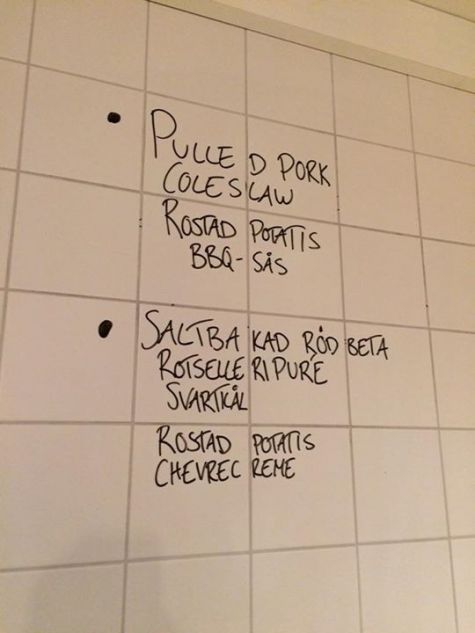 • PULLED PORK
COLESLAW
ROSTAD POTATIS
BBQ-SÅS
• SALTBAKAD RÖDBETA
ROTSELLERIPURÉ
SVARTKÅL
ROSTAD POTATIS
CHEVRECREME